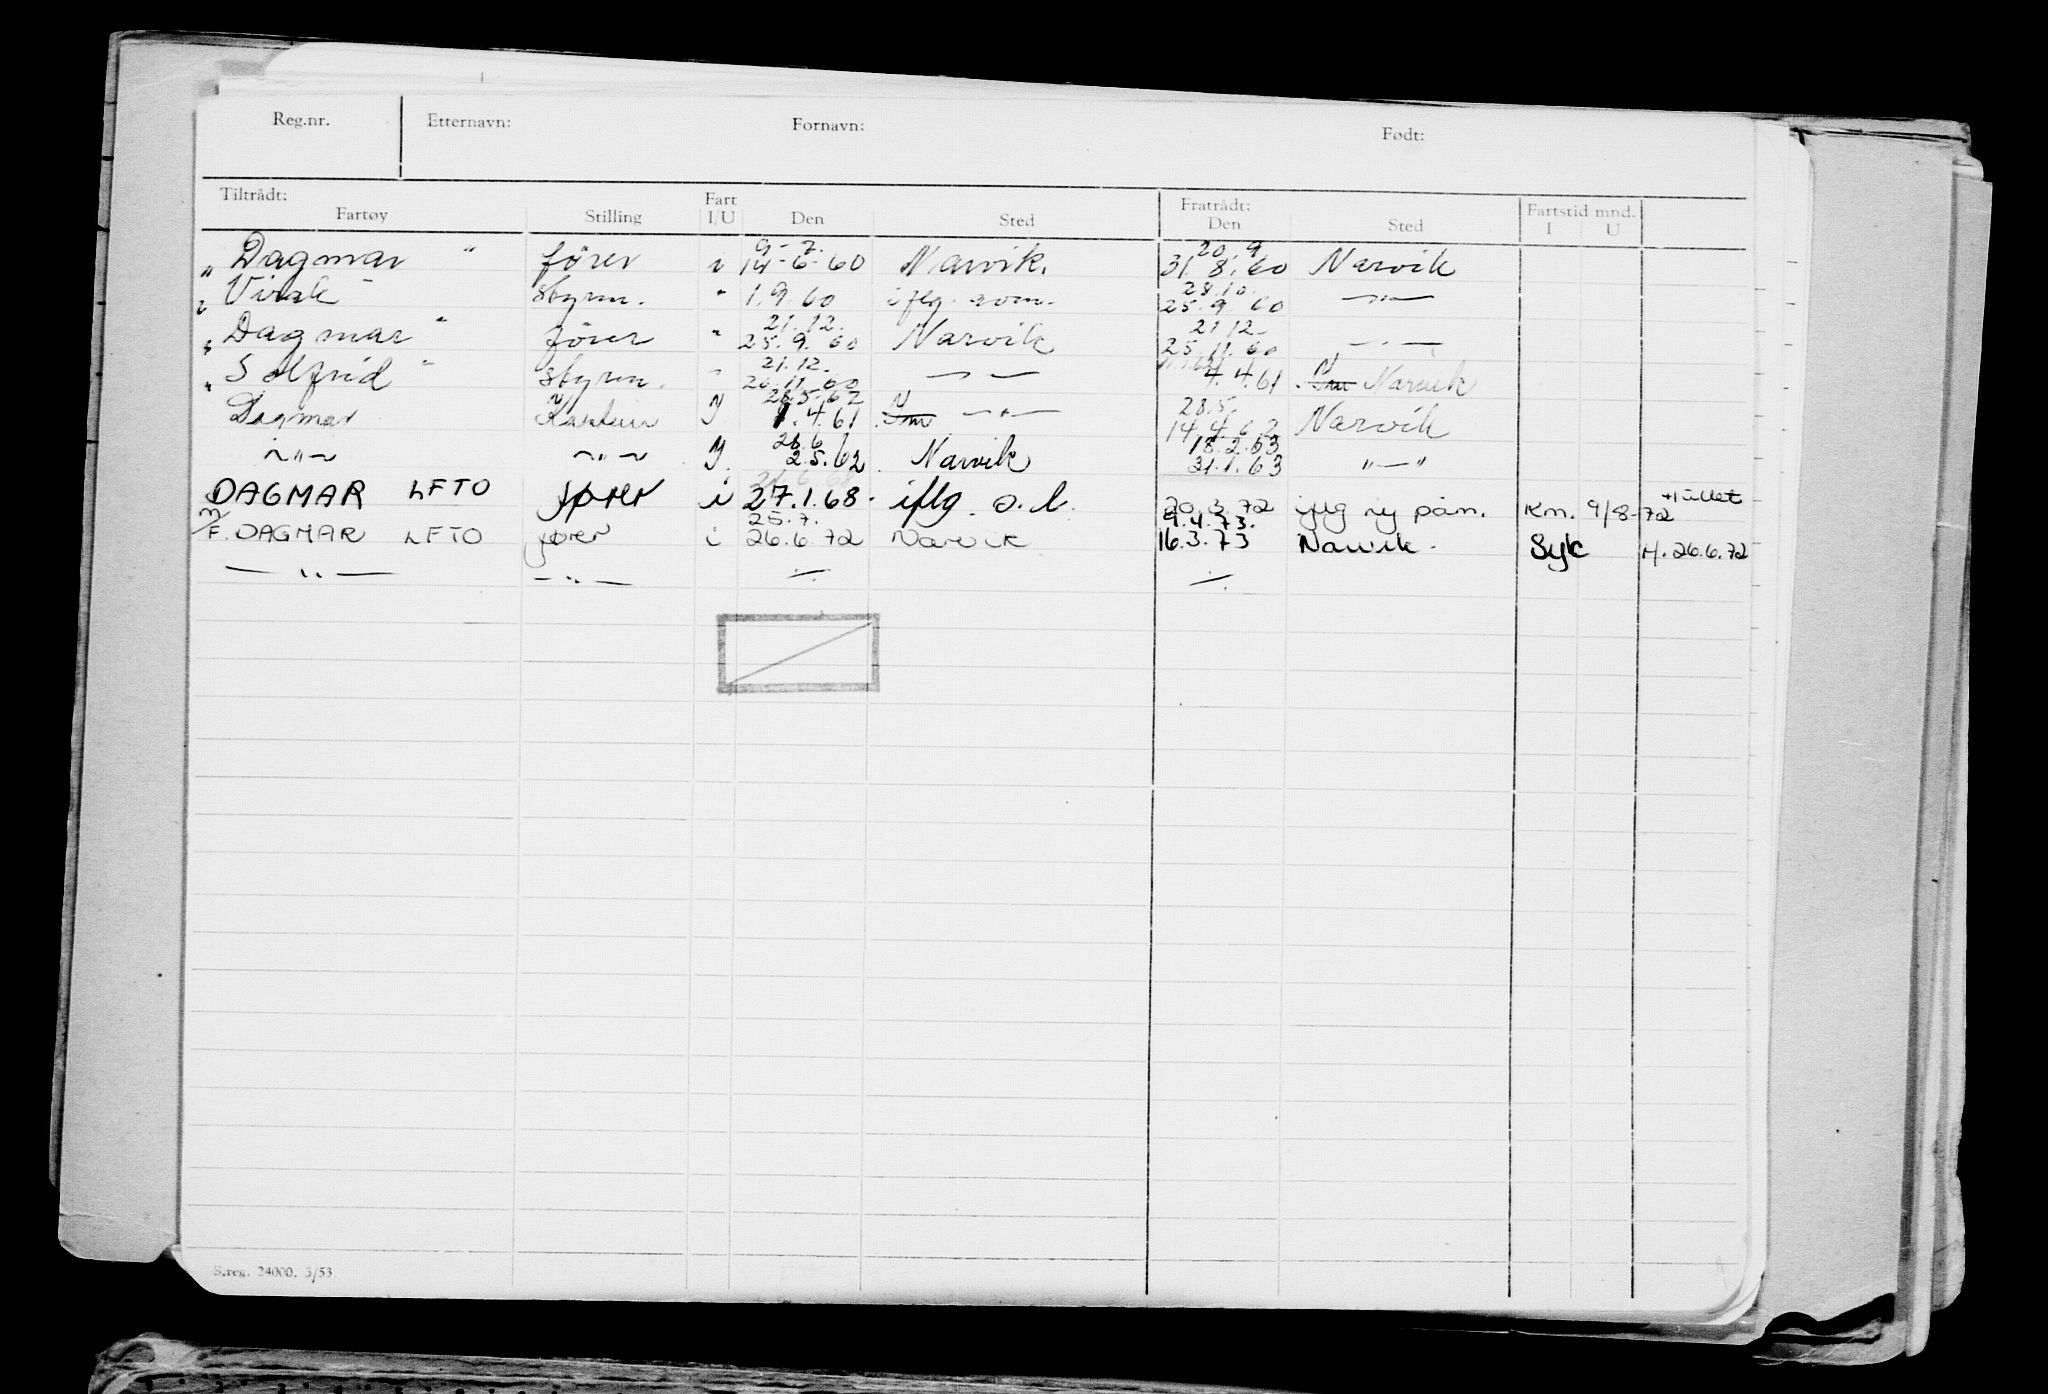 Reg.nr. Etternavn: Fornavn: Født:
Tiltrådt: Fart Fratrådt: Fartstid mnd.
Fartøy Stilling I/U Den Sted Den Sted I U
9-7. 20.9
" Dagmar " fører i 14-6-60 Narvik. 31.8.60 Narvik
28.10.
" styrm. " 1.9.60 iflg. rom. 25.9 60 —"—
21.12. 21 12-
" Dagmar " fører " 25.9.60 Narvik 25 11.60 —"—
21.12.
" Solfrid " styrm. " 26.11.60 —"— 4.4.61 Narvik
28.5.
Dagmar Y 1.4.61 —"— 14.4.62 Narvik
26.6 18.2.63
—"— —"— Y. 2.5.62 Narvik 31.1.63 "—"
DAGMAR LFTO fører i 27.1.68. iflg. o.l. 20.3.72 iflg ny påm. Km. 9/8-72
25.7. 9.4.73.
M/F. DAGMAR LFTO fører i 26.6.72 Narvik 16.3.73 Narvik. Syk H. 26.6.72
—"— —"— ⁒ ⁒
S.reg. 24000. 3/53